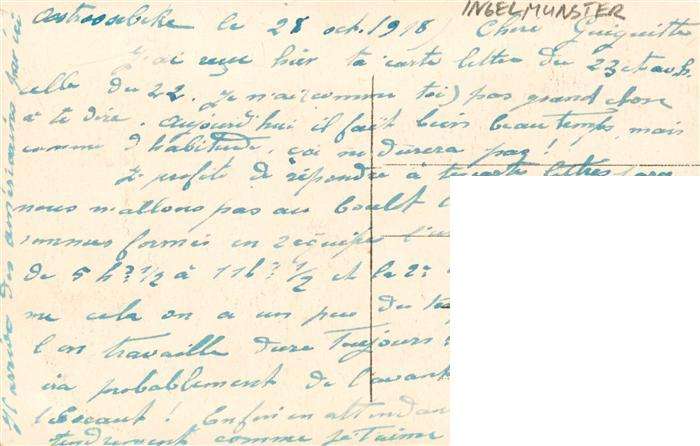 INGELMUNSTER
Oostroosebeke le 28 oct. 1918 Chère Guiguitte
J'ai reçu hier ta carte lettre du 23 et aussi
celle du 22. Je n'ai (comme toi) pas grand chose
à te dire. Aujourd'hui il fait bien beau temps, mais
comme d'habitude, ça ne durera pas!
Je profite de répondre à ta carte lettres, car
nous n'allons pas au boulot
sommes formés en 2 équipes l'u
de 5 h ½ à 11 h ½ et la 2e
me cela on a un peu de te
l'on travaille dure toujours
ira probablement de l'avant
l'Escaut! Enfin en attendan
tendrement comme je t'aime
Il arrive des américains par ici